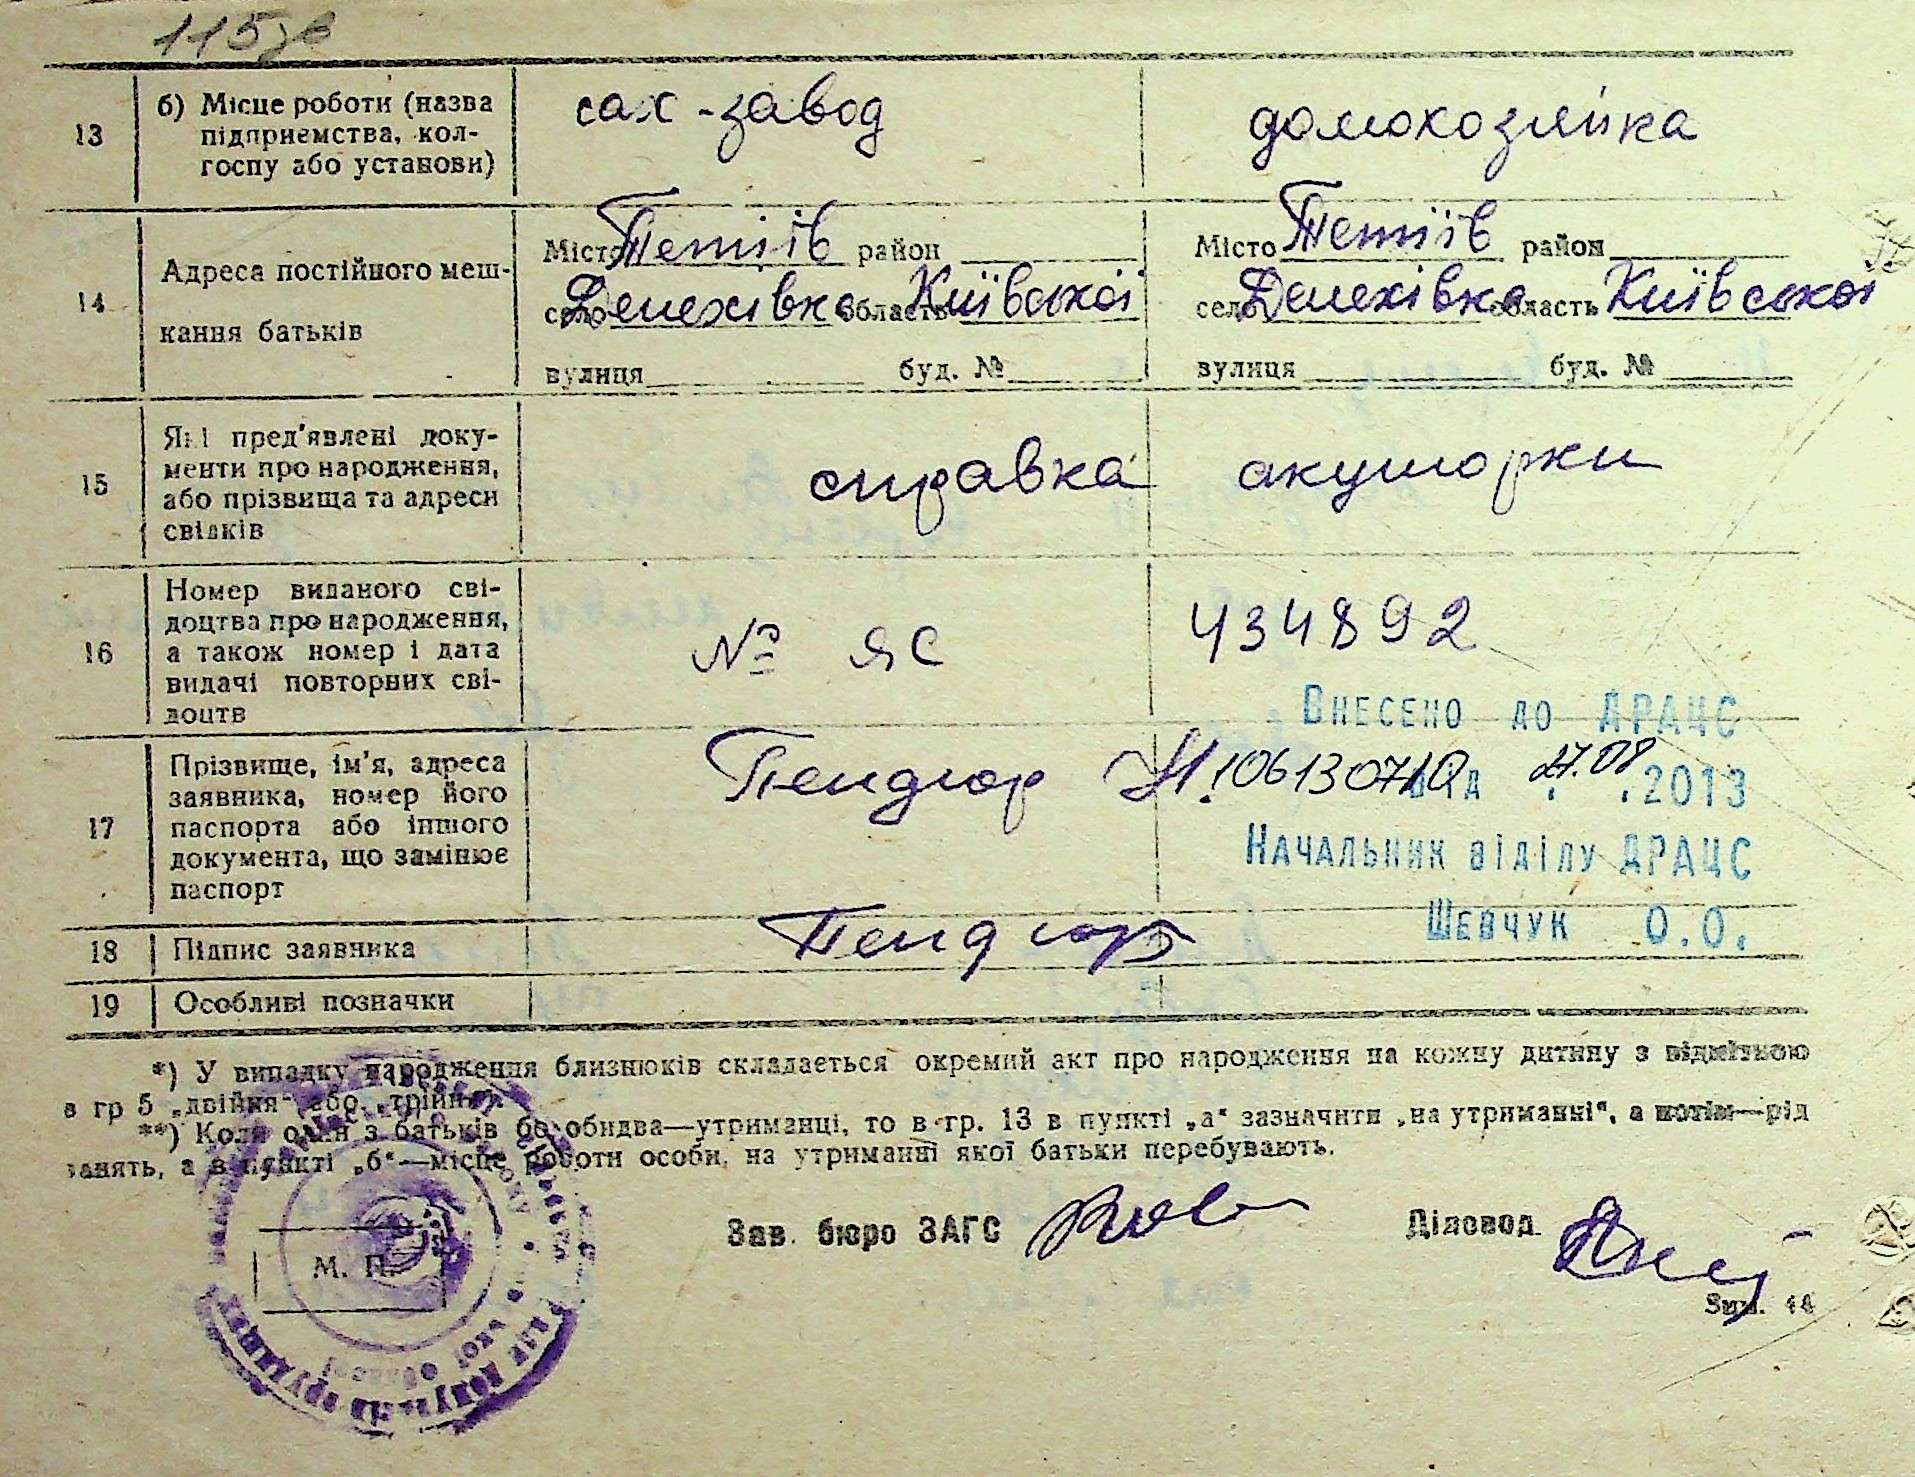 115зв
13
б) Місце роботи (назва
підприємства, кол-
госпу або установи)
сах-завод
домохозяйка
14
Адреса постійного меш-
кання батьків
Місто Тетіїв район
село Денехівка область Київської
вулиця буд. №
Місто Тетіїв район
село Денехівка область Київської
вулиця буд. №
15
Які пред'явлені доку-
менти про народження,
або прізвища та адреси
свідків
справка акушорки
16
Номер виданого сві-
доцтва про народження,
а також номер і дата
видачі повторних сві-
доцтв
№ ЯС 434892
Внесено до ДРАЦС
17
Прізвище, ім'я, адреса
заявника, номер його
паспорта або іншого
документа, що замінює
паспорт
Пендюр
від 27.08.2013
Начальник відділу ДРАЦС
Шевчук О.О.
18
Підпис заявника
Пендюр
19
Особливі позначки
*) У випадку народження близнюків складається окремий акт про народження на кожну дитину з відміткою
в гр 5 „двійня“ або „трійня“.
**) Коли один з батьків бо обидва—утриманці, то в гр. 13 в пункті „а“ зазначити „на утриманні“, а потім—рід
занять, а в пункті „б“—місце роботи особи, на утриманні якої батьки перебувають.
Зав. бюро ЗАГС
Діловод
М. П.
Зам. 14